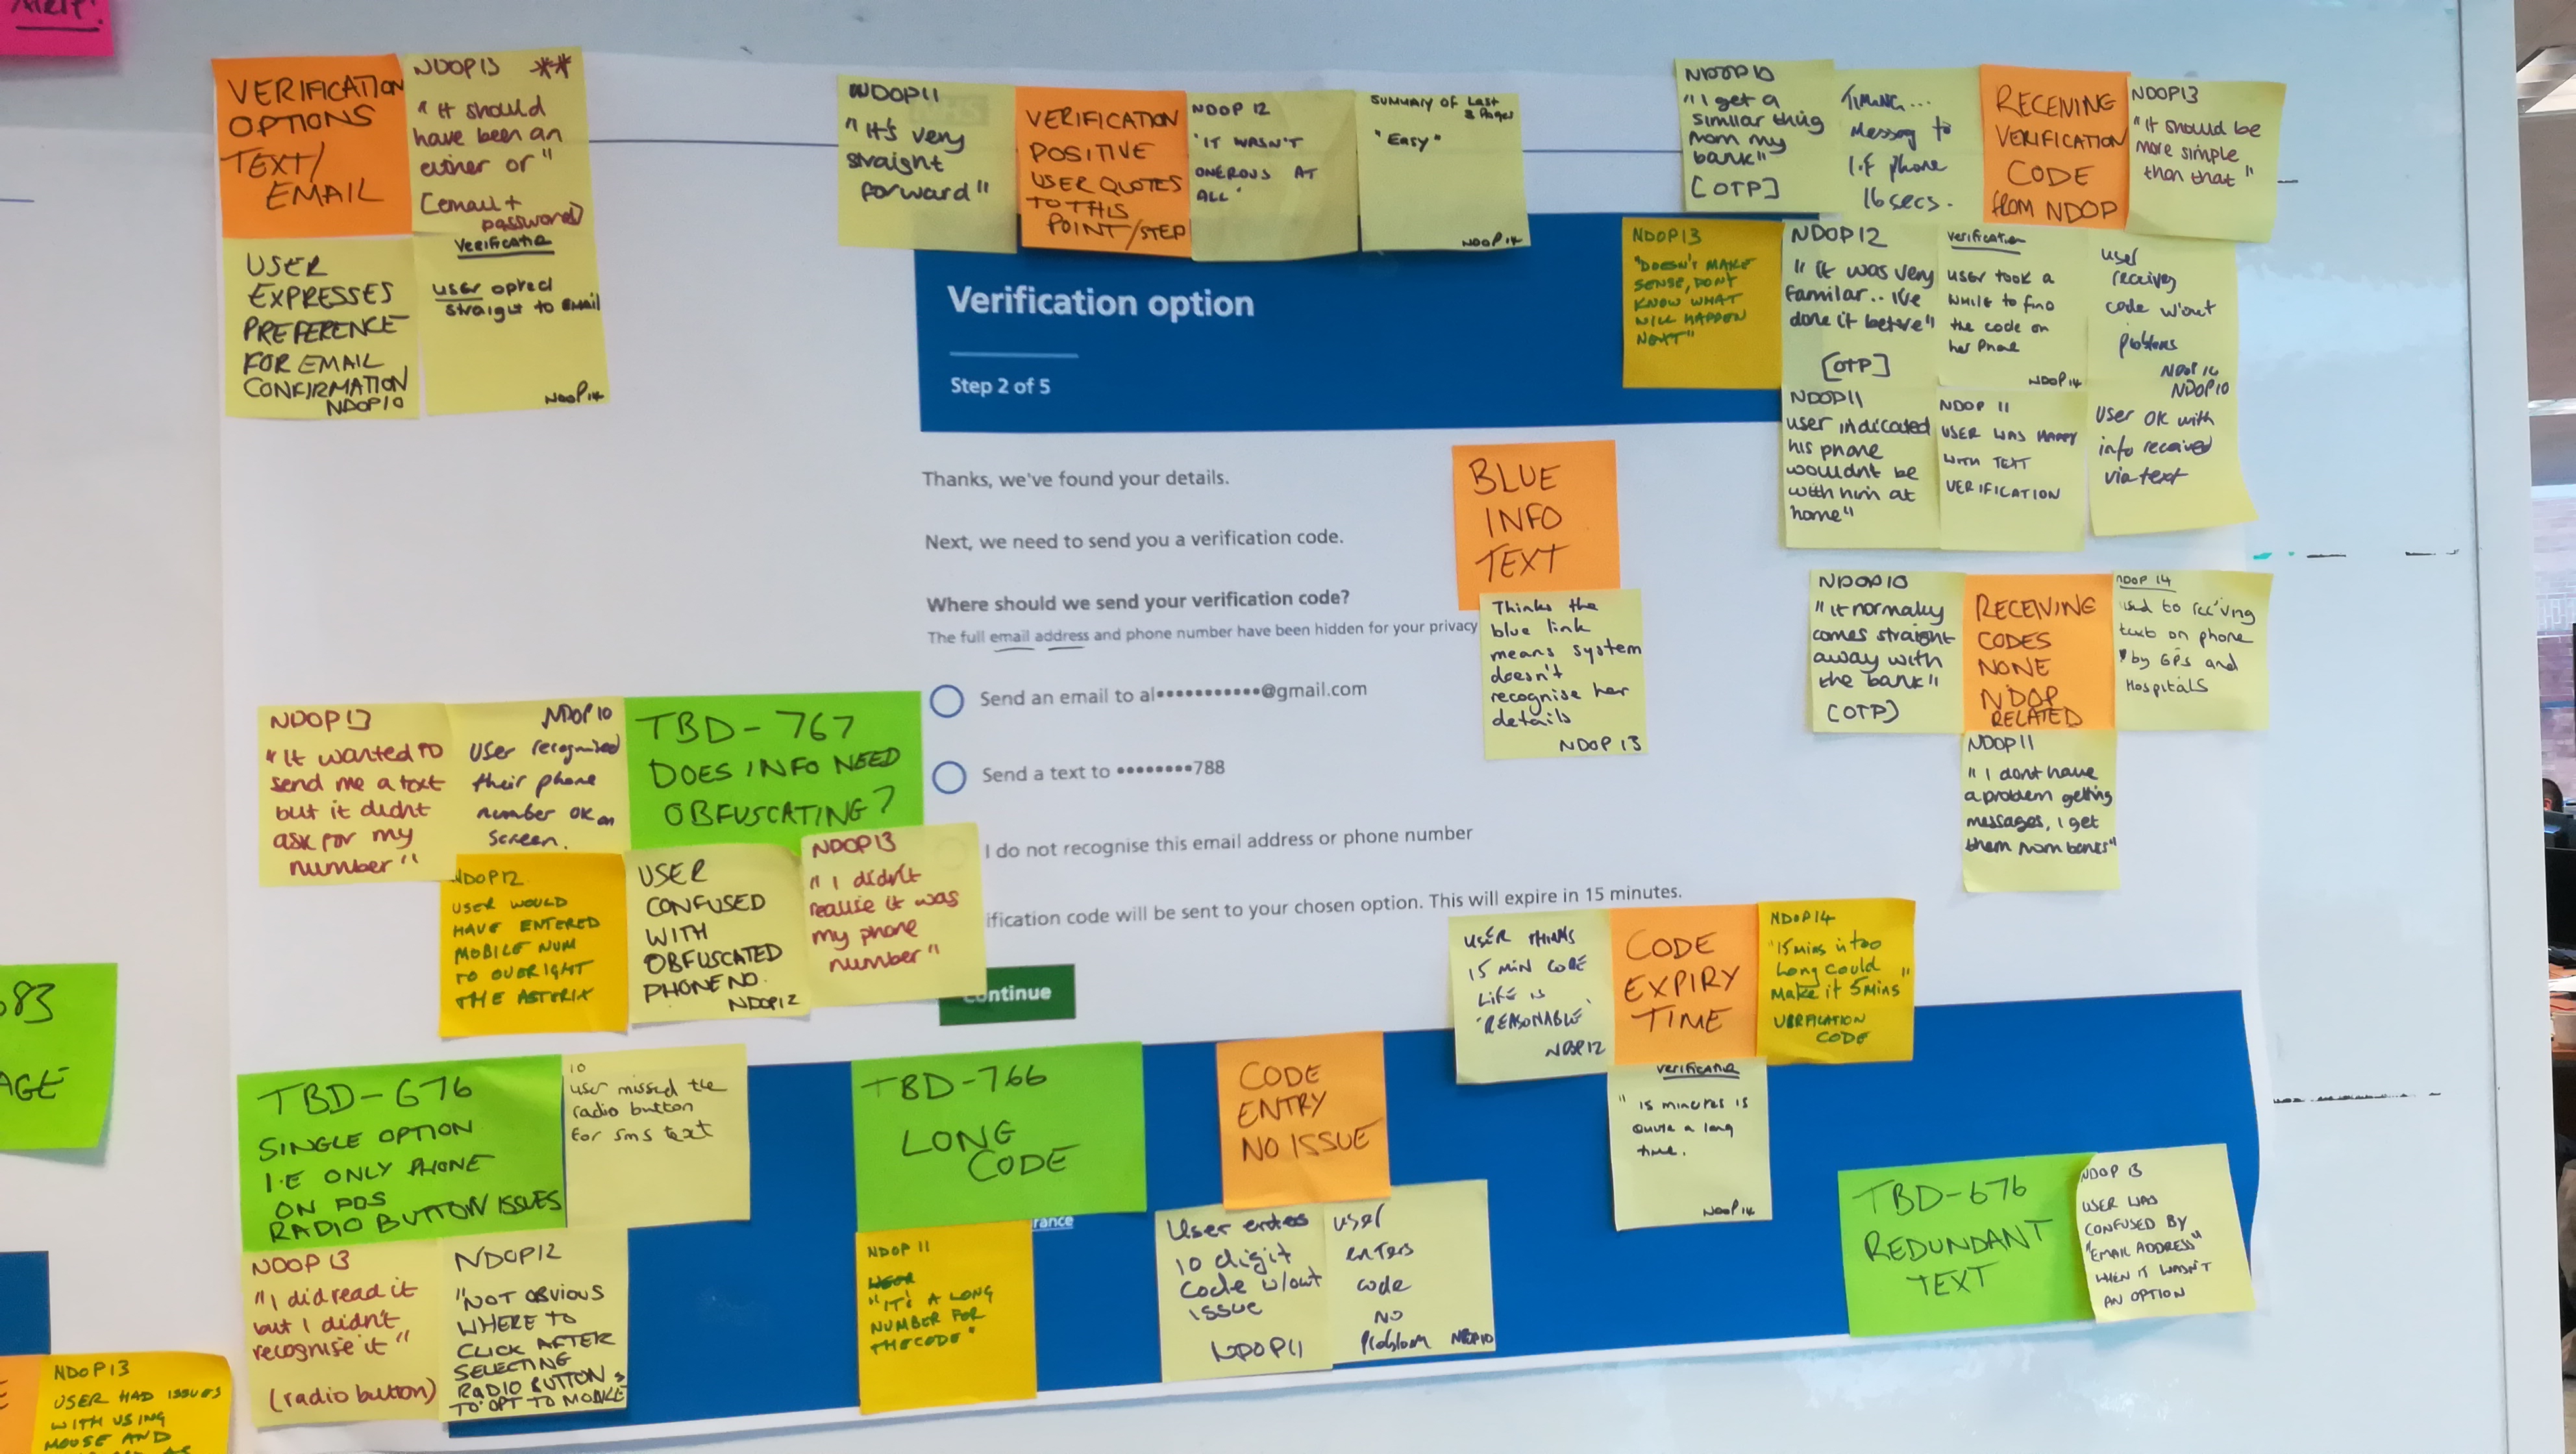 ALERT!
VERIFICATION
OPTIONS
TEXT/
EMAIL
NDOP13 **
"It should
have been an
either or"
[email +
password]
USER
EXPRESSES
PREFERENCE
FOR EMAIL
CONFIRMATION
NDOP10
Verification
user opted
straight to EMAIL
NDOP14
NDOP11
"It's very
straight
forward"
NHS
VERIFICATION
POSITIVE
USER QUOTES
TO THIS
POINT/STEP
NDOP 12
"IT WASN'T
ONEROUS AT
ALL"
SUMMARY OF Last
3 Pages
"Easy"
NDOP14
NDOP10
"I get a
similar thing
from my
bank"
[OTP]
TIMING...
Message to
I.F phone
16 secs.
RECEIVING
VERIFICATION
CODE
FROM NDOP
NDOP13
"It should be
more simple
than that"
NDOP13
"DOESN'T MAKE
SENSE, DONT
KNOW WHAT
WILL HAPPEN
NEXT"
NDOP12
"It was very
familar.. I've
done it before"
[OTP]
verification
user took a
while to find
the code on
her phone
NDOP14
user
receives
code w'out
problems
NDOP14
NDOP11
user indicated
his phone
wouldnt be
with him at
home"
NDOP 11
USER WAS HAPPY
WITH TEXT
VERIFICATION
NDOP10
User OK with
info received
via text
Verification option
Step 2 of 5
Thanks, we've found your details.
Next, we need to send you a verification code.
Where should we send your verification code?
The full email address and phone number have been hidden for your privacy
Send an email to al••••••••••••@gmail.com
Send a text to ••••••••788
I do not recognise this email address or phone number
ification code will be sent to your chosen option. This will expire in 15 minutes.
Continue
BLUE
INFO
TEXT
Thinks the
blue link
means system
doesn't
recognise her
details
NDOP 13
NDOP10
"it normally
comes straight
away with
the bank"
(OTP)
RECEIVING
CODES
NONE
NDOP
RELATED
NDOP 14
used to rec'ving
texts on phone
by GPs and
Hospitals
NDOP11
"I dont have
a problem getting
messages, I get
them from banks"
NDOP13
"It wanted to
send me a text
but it didnt
ask for my
number"
NDOP10
User recognised
their phone
number OK on
screen.
TBD-767
DOES INFO NEED
OBFUSCATING?
NDOP12
USER WOULD
HAVE ENTERED
MOBILE NUM
TO OVERIGHT
THE ASTERIX
USER
CONFUSED
WITH
OBFUSCATED
PHONE NO.
NDOP12
NDOP13
"I didn't
realise it was
my phone
number"
USER THINKS
15 MIN CODE
LIFE IS
'REASONABLE'
NDOP12
CODE
EXPIRY
TIME
NDOP14
"15mins is too
long could
make it 5mins"
VERIFICATION
CODE
Verification
"15 minutes is
quite a long
time.
NDOP14
683
AGE
TBD-676
SINGLE OPTION
I.E ONLY PHONE
ON PDS
RADIO BUTTON ISSUES
10
user missed the
radio button
for sms text
NDOP13
"I did read it
but I didn't
recognise it"
(radio button)
NDOP12
"NOT OBVIOUS
WHERE TO
CLICK AFTER
SELECTING
RADIO BUTTON
TO OPT TO MOBILE
TBD-766
LONG
CODE
NDOP 11
"IT'S A LONG
NUMBER FOR
THE CODE"
rance
CODE
ENTRY
NO ISSUE
User enters
10 digit
code w/out
issue
NDOP11
user
enters
code
no
problem NDOP10
TBD-676
REDUNDANT
TEXT
NDOP 13
USER WAS
CONFUSED BY
"EMAIL ADDRESS"
WHEN IT WASN'T
AN OPTION
NDOP13
USER HAD ISSUES
WITH USING
MOUSE AND